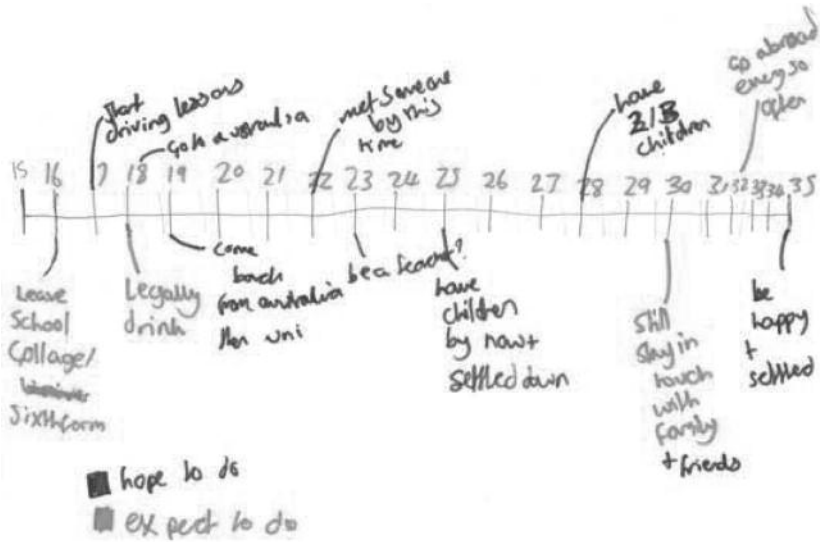 start
driving lessons
go to australia
met someone
by this
time
have
2/3
children
go abroad
every so
often
15 16 7 18 19 20 21 22 23 24 25 26 27 28 29 30 31 32 33 34 35
Leave
School
Collage/
Sixthform
Legally
drink
come
back
from australia
then uni
be a teacher?
have
children
by now +
settled down
still
stay in
touch
with
family
+ friends
be
happy
+
settled
hope to do
expect to do